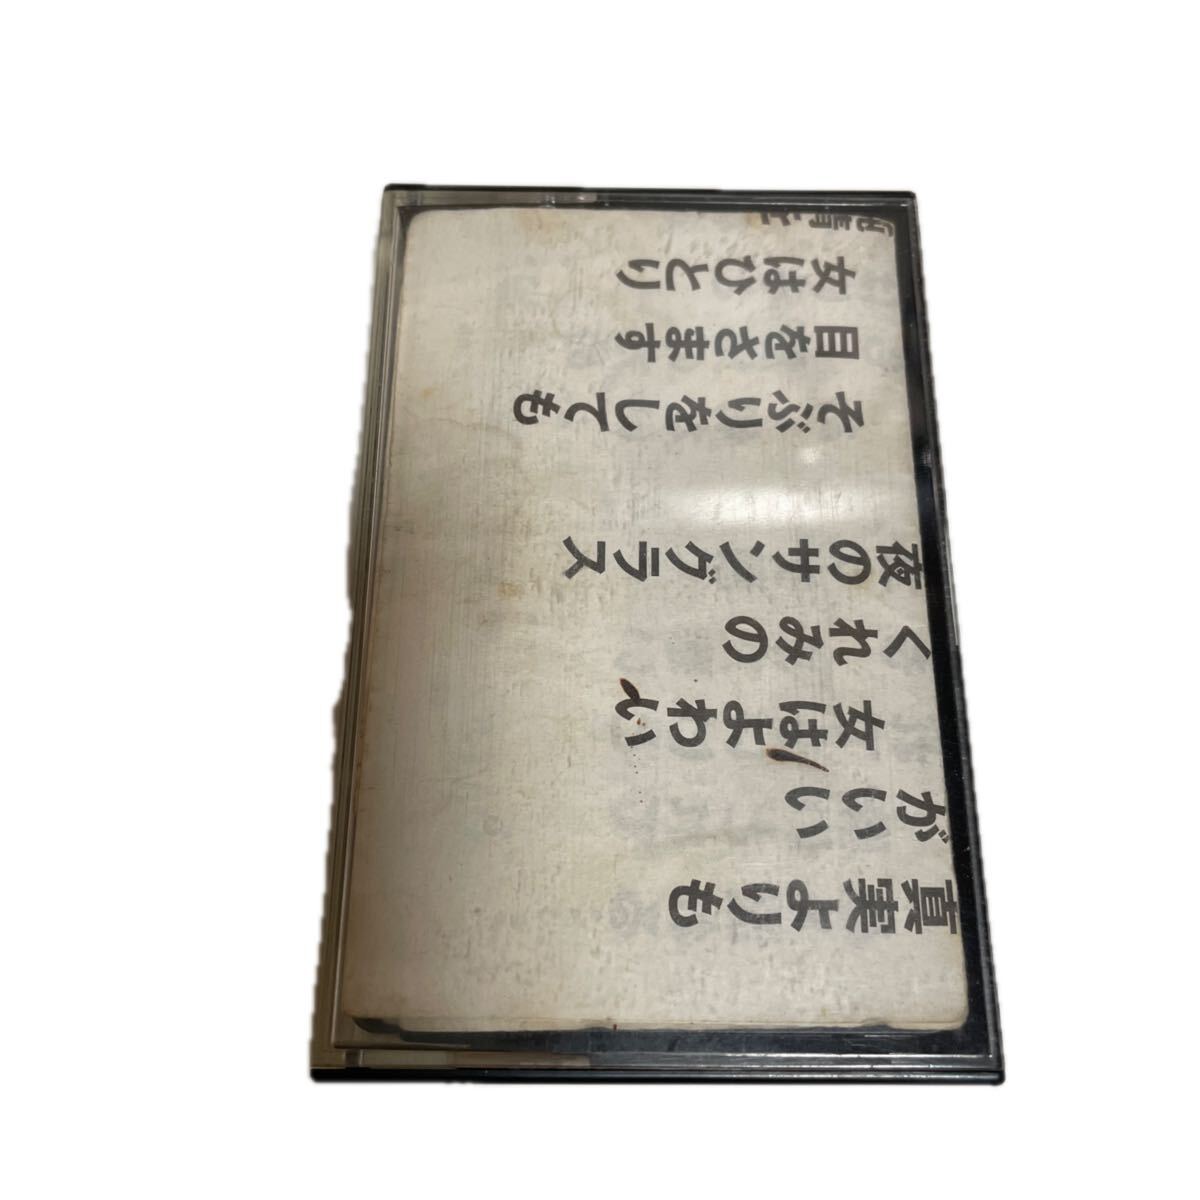 真実よりも
がいい
女はよわい
くれみの
夜のサングラス
そぶりをしても
目をさます
女はひとり